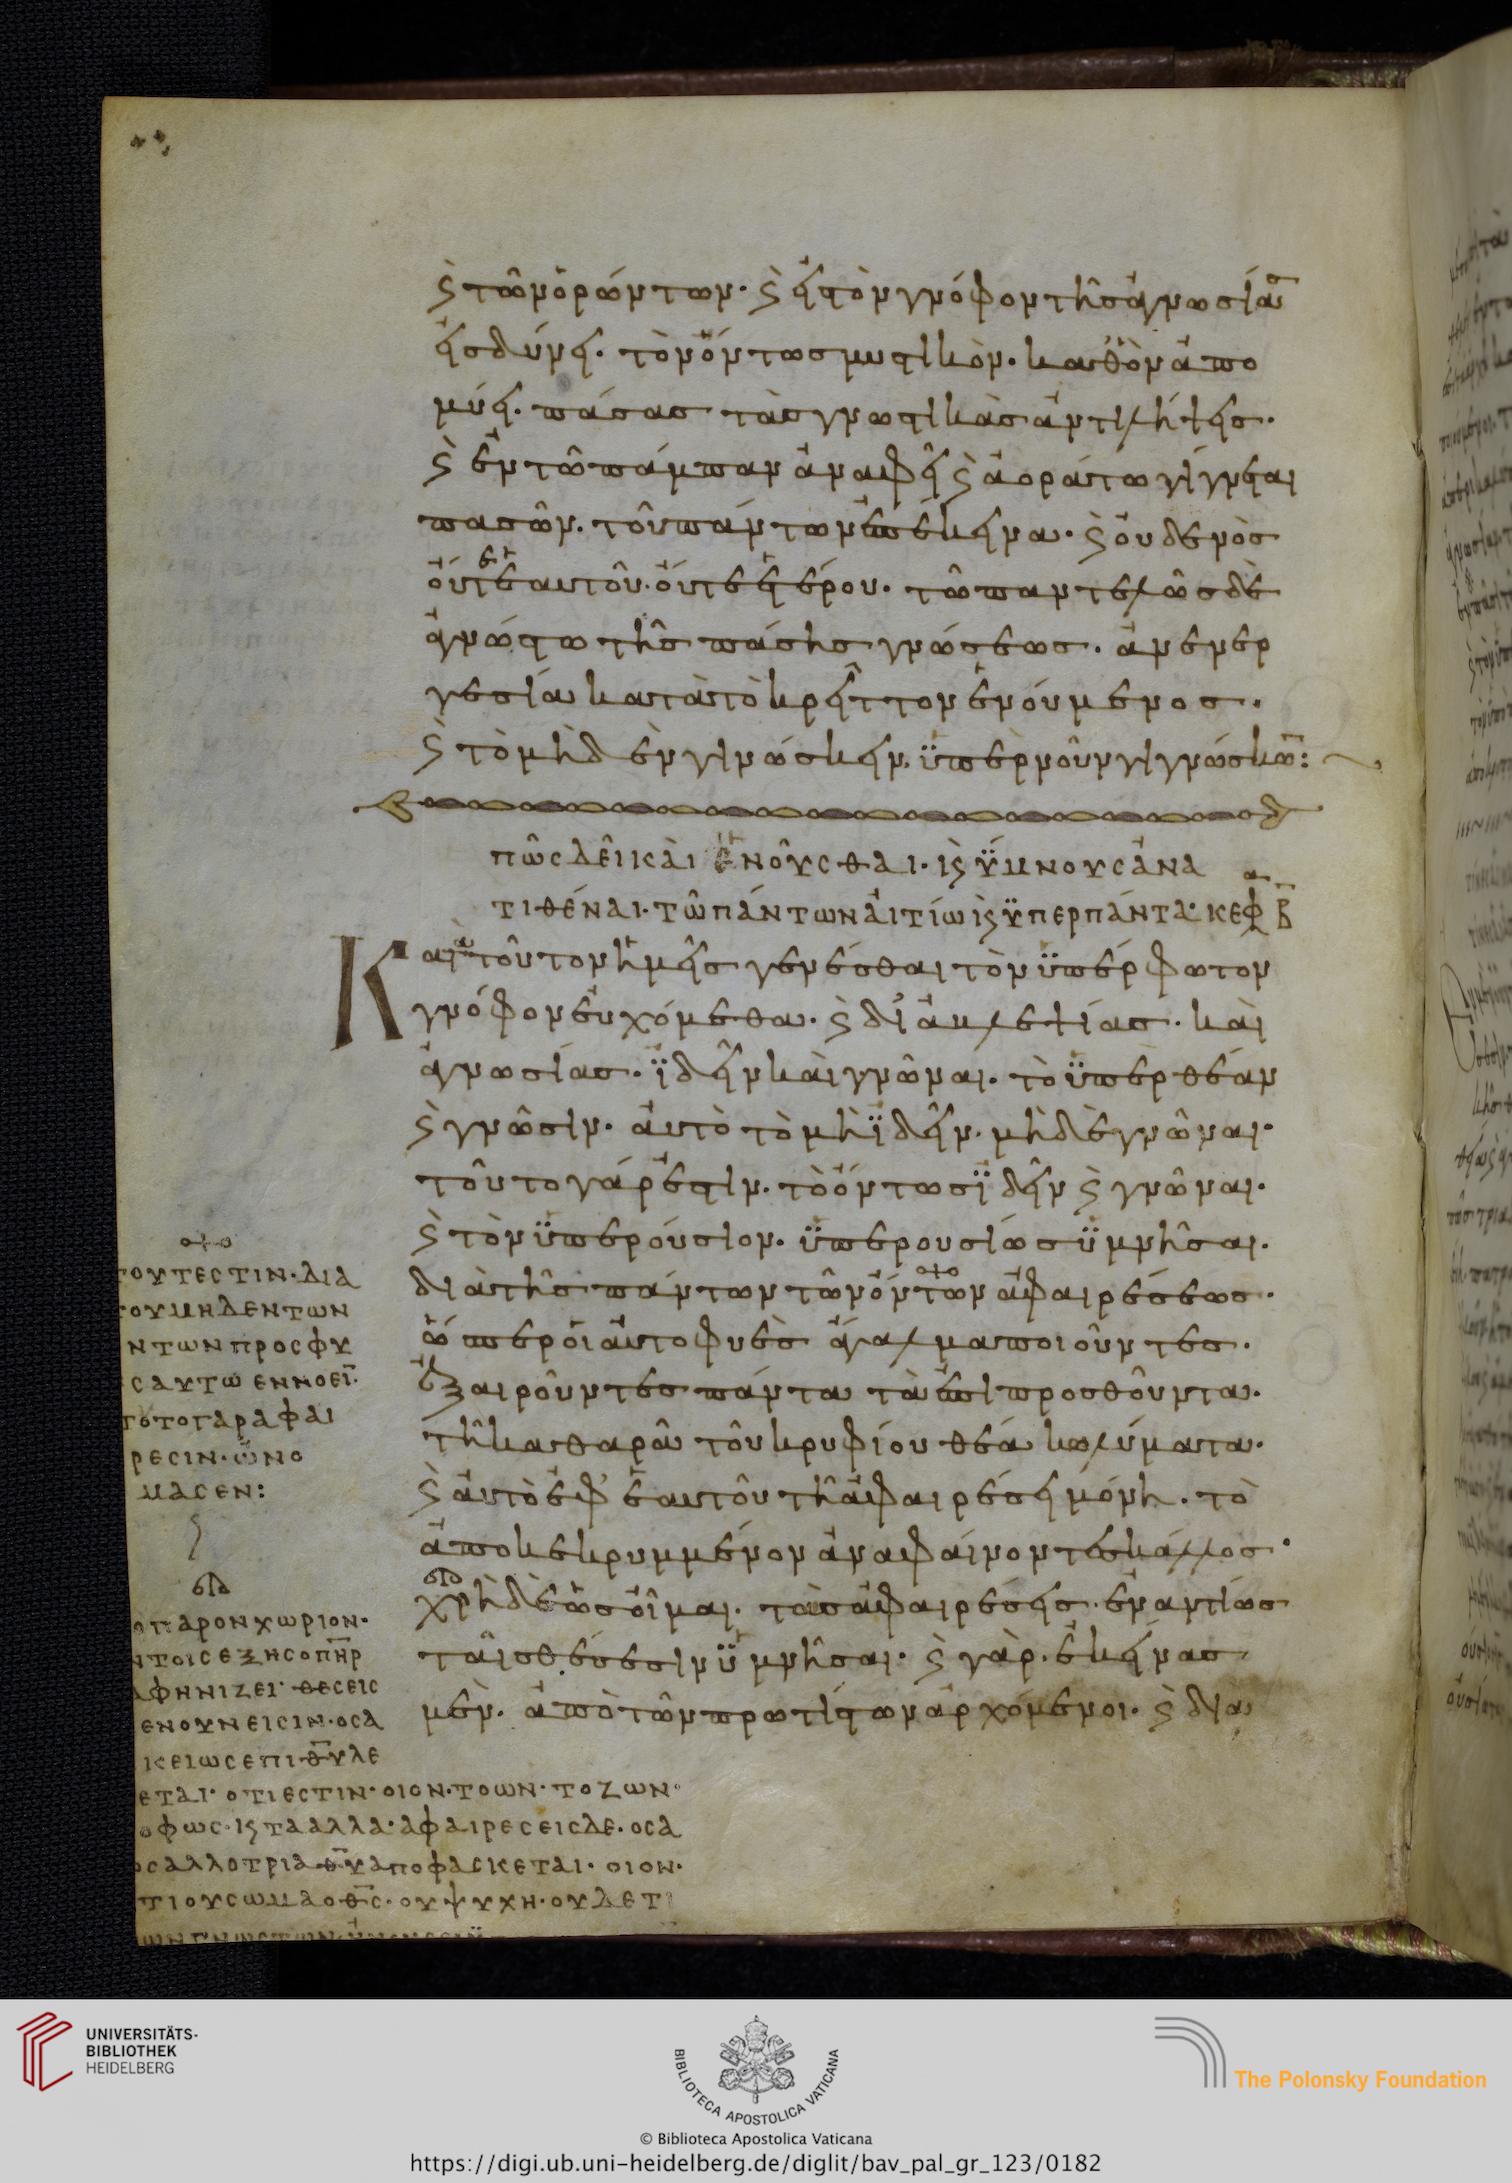 ϗ τῶν ὁρώντων· ϗ εἰς τὸν γνόφον τῆς ἀγνωσίας
εἰσδύνει· τὸν ὄντως μυστικὸν· καθ' ὃν ἀπο
μύει· πάσας τὰς γνωστικὰς ἀντιλήψεις·
ϗ ἐν τῶ πάμπαν ἀναφεῖ ϗ ἀοράτω γίγνεται
πασῶν· τοῦ πάντων ἐπέκεινα· ϗ οὐδενὸς
οὔτε ἑαυτοῦ· οὔτε ἑτέρου· τῶ παντελῶς δὲ
ἀγνώστω τῆς πάσης γνώσεως· ἀνενερ
γεσία κατὰ τὸ κρεῖττον ἑνούμενος·
ϗ τὸ μηδὲν γινώσκειν, ὑπὲρ νοῦν γιγνώσκων:
ΠΩΣ ΔΕΙ ΚΑΙ ΕΝΟΥΣΘΑΙ· ϗ ΫΜΝΟΥΣ ΑΝΑ
ΤΙΘΕΝΑΙ· ΤΩ ΠΑΝΤΩΝ ΑΙΤΙΩ ϗ ΫΠΕΡ ΠΑΝΤΑ· ΚΕΦ Β
Κατὰ τοῦτον ἡμεῖς γενέσθαι τὸν ὑπέρφωτον
γνόφον εὐχόμεθα· ϗ δι' ἀβλεψίας· καὶ
ἀγνωσίας· ἰδεῖν καὶ γνῶναι· τὸ ὑπὲρ θέαν
ϗ γνῶσιν· αὐτὸ τὸ μὴ ἰδεῖν· μηδὲ γνῶναι·
τοῦτο γάρ ἐστιν· τὸ ὄντως ἰδεῖν ϗ γνῶναι·
ϗ τὸν ὑπερούσιον· ὑπερουσίως ὑμνῆσαι·
διὰ τῆς πάντων τῶν ὄντων ἀφαιρέσεως·
ὥσπερ οἱ αὐτοφυὲς ἄγαλμα ποιοῦντες·
ἐξαιροῦντες πάντα τὰ ἐπιπροσθοῦντα·
τῆ καθαρᾶ τοῦ κρυφίου θέα κωλύματα·
ϗ αὐτὸ ἐφ' ἑαυτοῦ τῆ ἀφαιρέσει μόνη· τὸ
ἀποκεκρυμμένον ἀναφαίνοντες κάλλος·
χρὴ δὲ ὡς οἶμαι· τὰς ἀφαιρέσεις· ἐναντίως
ταῖς θέσεσιν ὑμνῆσαι· ϗ γὰρ· ἐκείνας
μὲν· ἀπὸ τῶν πρωτίστων ἀρχόμενοι· ϗ διὰ
ΤΟΥΤΕΣΤΙΝ· ΔΙΑ
ΤΟΥ ΜΗΔΕΝ ΤΩΝ
ΝΤΩΝ ΠΡΟΣΦΥ
Σ ΑΥΤΩ ΕΝΝΟΕΙ·
ΤΟΥΤΟ ΓΑΡ ΑΦΑΙ
ΡΕΣΙΝ· ΩΝΟ
ΜΑΣΕΝ:
Ο ΠΑΡΟΝ ΧΩΡΙΟΝ·
ΝΤΟΙΣ ΕΞΗΣ Ο ΠΗΡ
ΑΦΗΝΙΖΕΙ· ΘΕΣΕΙΣ
ΕΝ ΟΥΝ ΕΙΣΙΝ· ΟΣΑ
ΙΚΕΙΩΣ ΕΠΙ ΘΥ ΛΕ
ΕΤΑΙ· ΟΤΙ ΕΣΤΙΝ· ΟΙΟΝ· ΤΟ ΩΝ· ΤΟ ΖΩΝ·
ΟΦΩΣ· ϗ ΤΑ ΑΛΛΑ· ΑΦΑΙΡΕΣΕΙΣ ΔΕ· ΟΣΑ
ΟΣ ΑΛΛΟΤΡΙΑ ΘΥ ΑΠΟΦΑΣΚΕΤΑΙ· ΟΙΟΝ·
ΤΙ ΟΥ ΣΩΜΑ Ο ΘΣ· ΟΥ ΨΥΧΗ· ΟΥΔΕ Τ
UNIVERSITÄTS-
BIBLIOTHEK
HEIDELBERG
BIBLIOTECA APOSTOLICA VATICANA
The Polonsky Foundation
© Biblioteca Apostolica Vaticana
https://digi.ub.uni-heidelberg.de/diglit/bav_pal_gr_123/0182